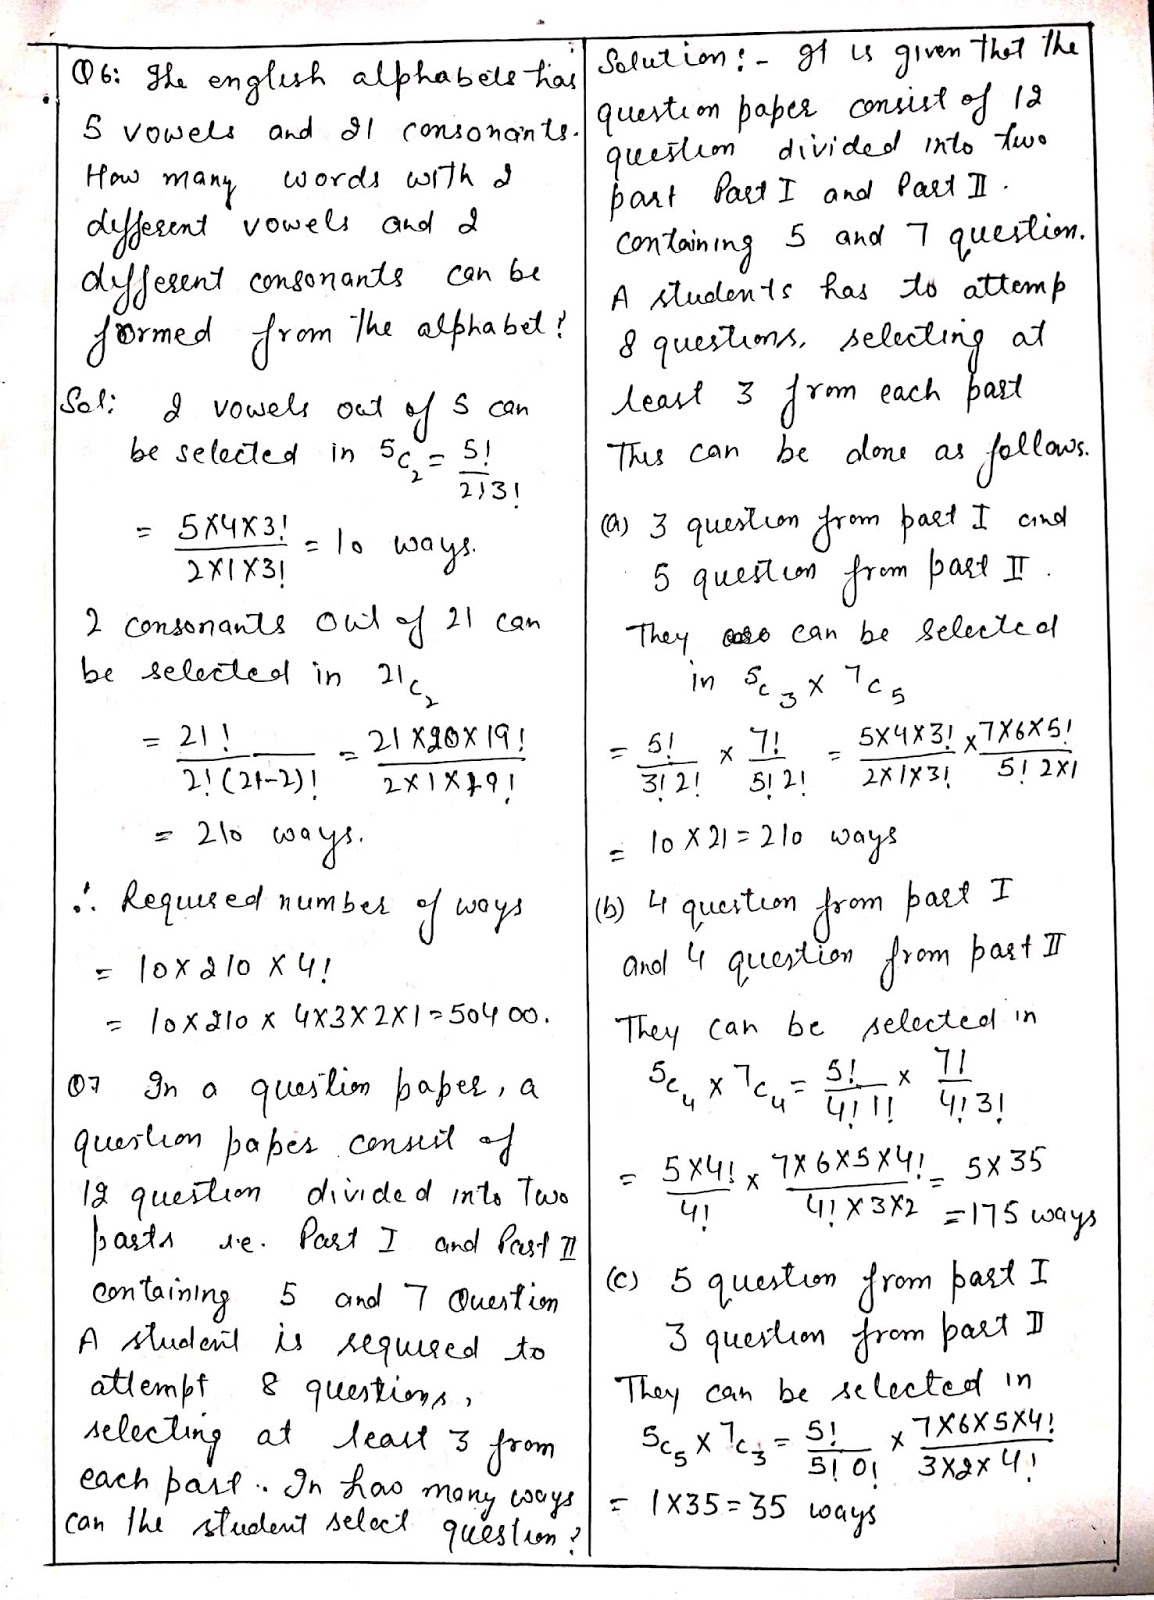 Q6: The english alphabets has
5 vowels and 21 consonants.
How many words with 2
different vowels and 2
different consonants can be
formed from the alphabet?
Sol: 2 vowels out of 5 can
be selected in 5C2 = 5!/2!3!
= 5X4X3!/2X1X3! = 10 ways.
2 consonants out of 21 can
be selected in 21C2
= 21!/2!(21-2)! = 21X20X19!/2X1X19!
= 210 ways.
∴ Required number of ways
= 10X210X4!
= 10X210X4X3X2X1=50400.
Q7 In a question paper, a
question paper consist of
12 question divided into Two
parts i.e. Part I and Part II
containing 5 and 7 Question
A student is required to
attempt 8 questions,
selecting at least 3 from
each part. In how many ways
can the student select question?
Solution:- It is given that the
question paper consist of 12
question divided into two
part Part I and Part II.
containing 5 and 7 question.
A students has to attemp
8 questions, selecting at
least 3 from each part
This can be done as follows.
(a) 3 question from part I and
5 question from part II.
They can be selected
in 5C3 X 7C5
= 5!/3!2! X 7!/5!2! = 5X4X3!/2X1X3! X 7X6X5!/5!2X1
= 10X21=210 ways
(b) 4 question from part I
and 4 question from part II
They can be selected in
5C4 X 7C4 = 5!/4!1! X 7!/4!3!
= 5X4!/4! X 7X6X5X4!/4!X3X2 = 5X35
=175 ways
(c) 5 question from part I
3 question from part II
They can be selected in
5C5 X 7C3 = 5!/5!0! X 7X6X5X4!/3X2X4!
= 1X35=35 ways